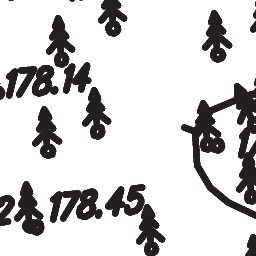 178.14
178.45